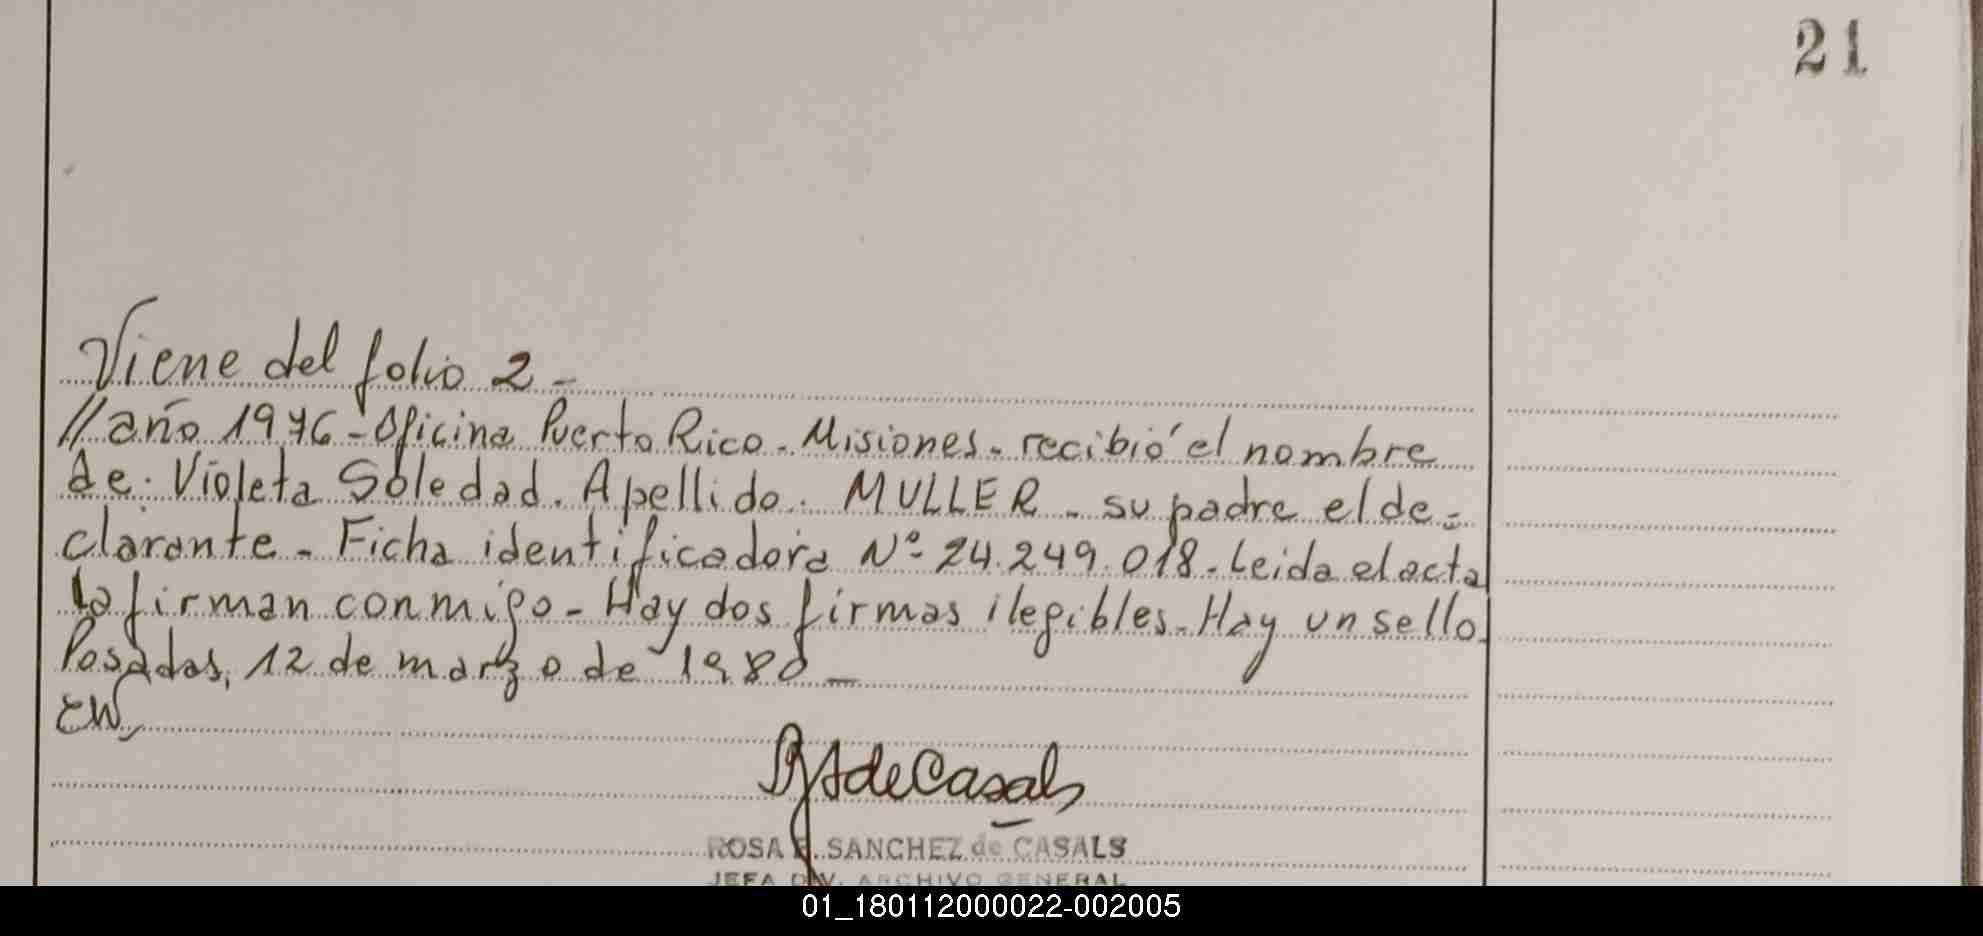 21
Viene del folio 2 -
// año 1976 - Oficina Puerto Rico - Misiones - recibió el nombre
de: Violeta Soledad. Apellido: MULLER - su padre el de=
clarante - Ficha identificadora Nº 24.249.018 - Leida el acta
la firman conmigo - Hay dos firmas ilegibles - Hay un sello.
Posadas, 12 de marzo de 1980 -
EW
de Casals
ROSA E. SANCHEZ de CASALS
JEFA DIV. ARCHIVO GENERAL
01_180112000022-002005